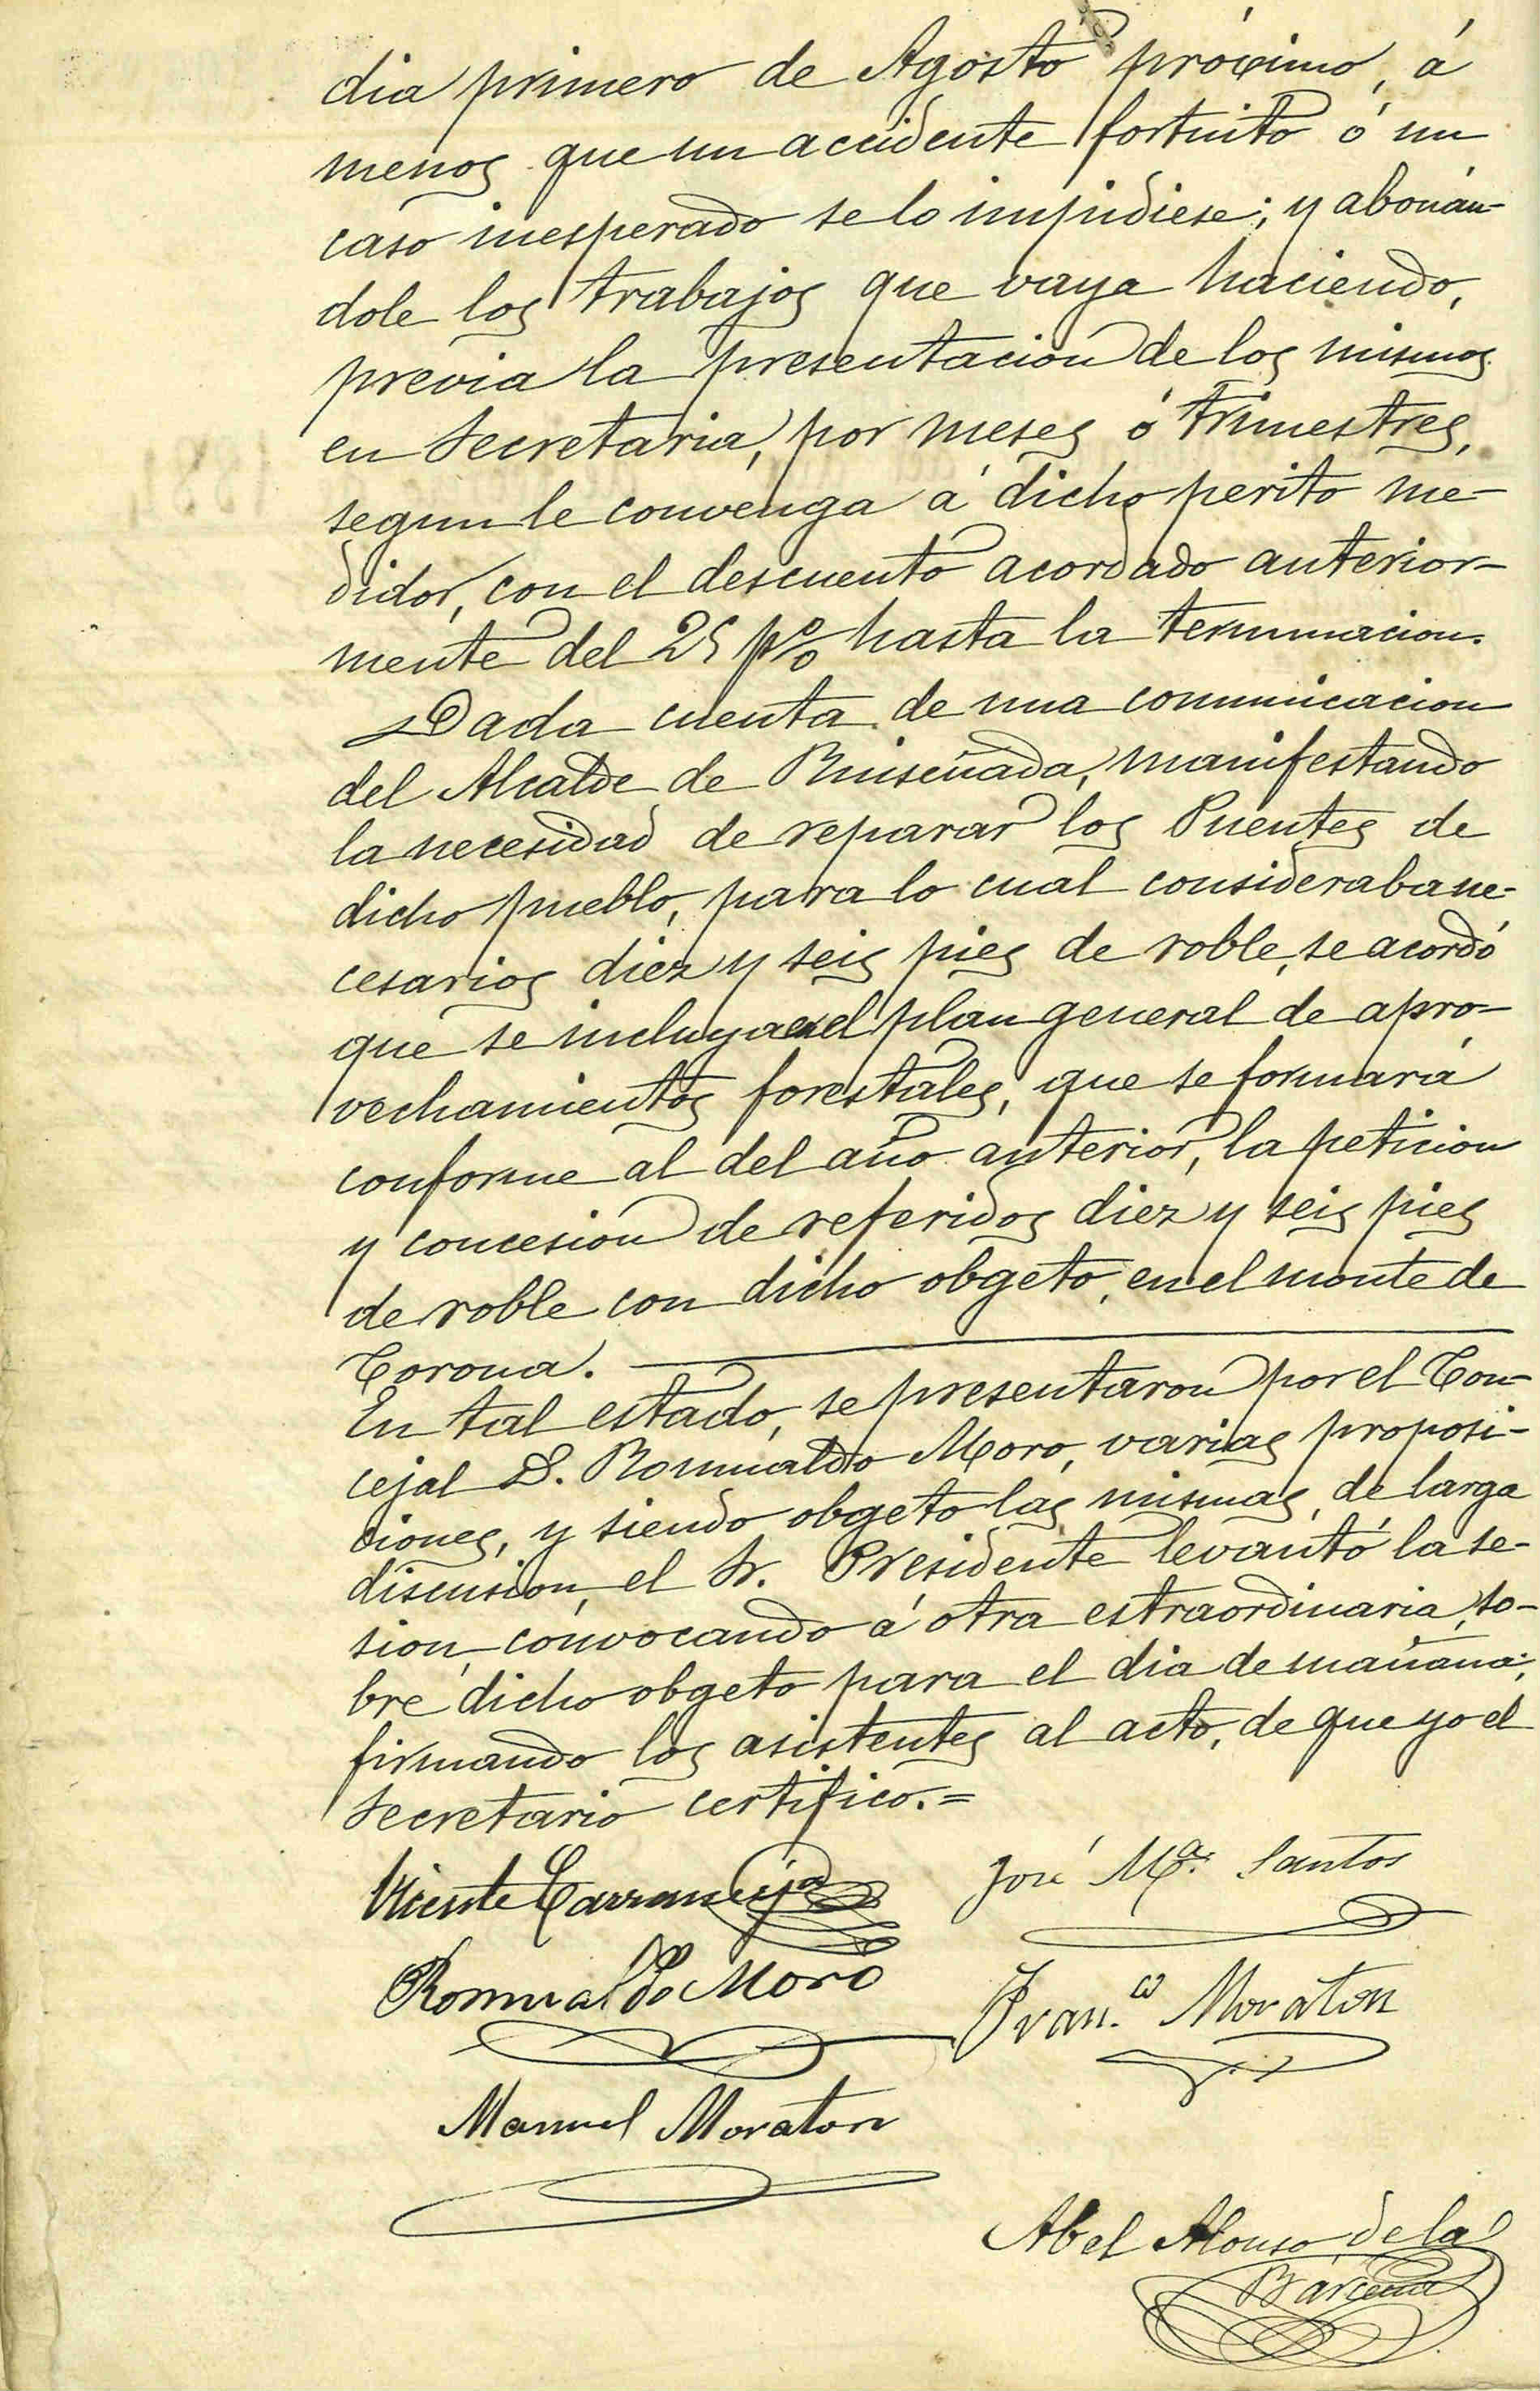 dia primero de Agosto próximo, á
menos que un accidente fortuito ó un
caso inesperado se lo impidiese; y abonán-
dole los trabajos que vaya haciendo,
previa la presentacion de los mismos
en Secretaria, por meses ó trimestres,
segun le convenga á dicho perito me-
didor, con el descuento acordado anterior-
mente del 25 p% hasta la terminacion.
Dada cuenta de una comunicacion
del Alcalde de Ruiseñada, manifestando
la necesidad de reparar los Puentes de
dicho pueblo, para lo cual consideraba ne-
cesarios diez y seis pies de roble, se acordó
que se incluya en el plan general de apro-
vechamientos forestales, que se formará
conforme al del año anterior, la peticion
y concesion de referidos diez y seis pies
de roble con dicho obgeto, en el monte de
Corona.
En tal estado, se presentaron por el Con-
cejal D. Romualdo Moro, varias proposi-
ciones, y siendo obgeto las mismas, de larga
discusion, el Sr. Presidente levantó la se-
sion, convocando á otra estraordinaria, so-
bre dicho obgeto para el dia de mañana;
firmando los asistentes al acto, de que yo el
Secretario certifico.=
Vicente Carranceja José Mª. Santos
Romualdo Moro Fran.co Moraton
Manuel Moraton
Abel Alonso de la
Bárcena